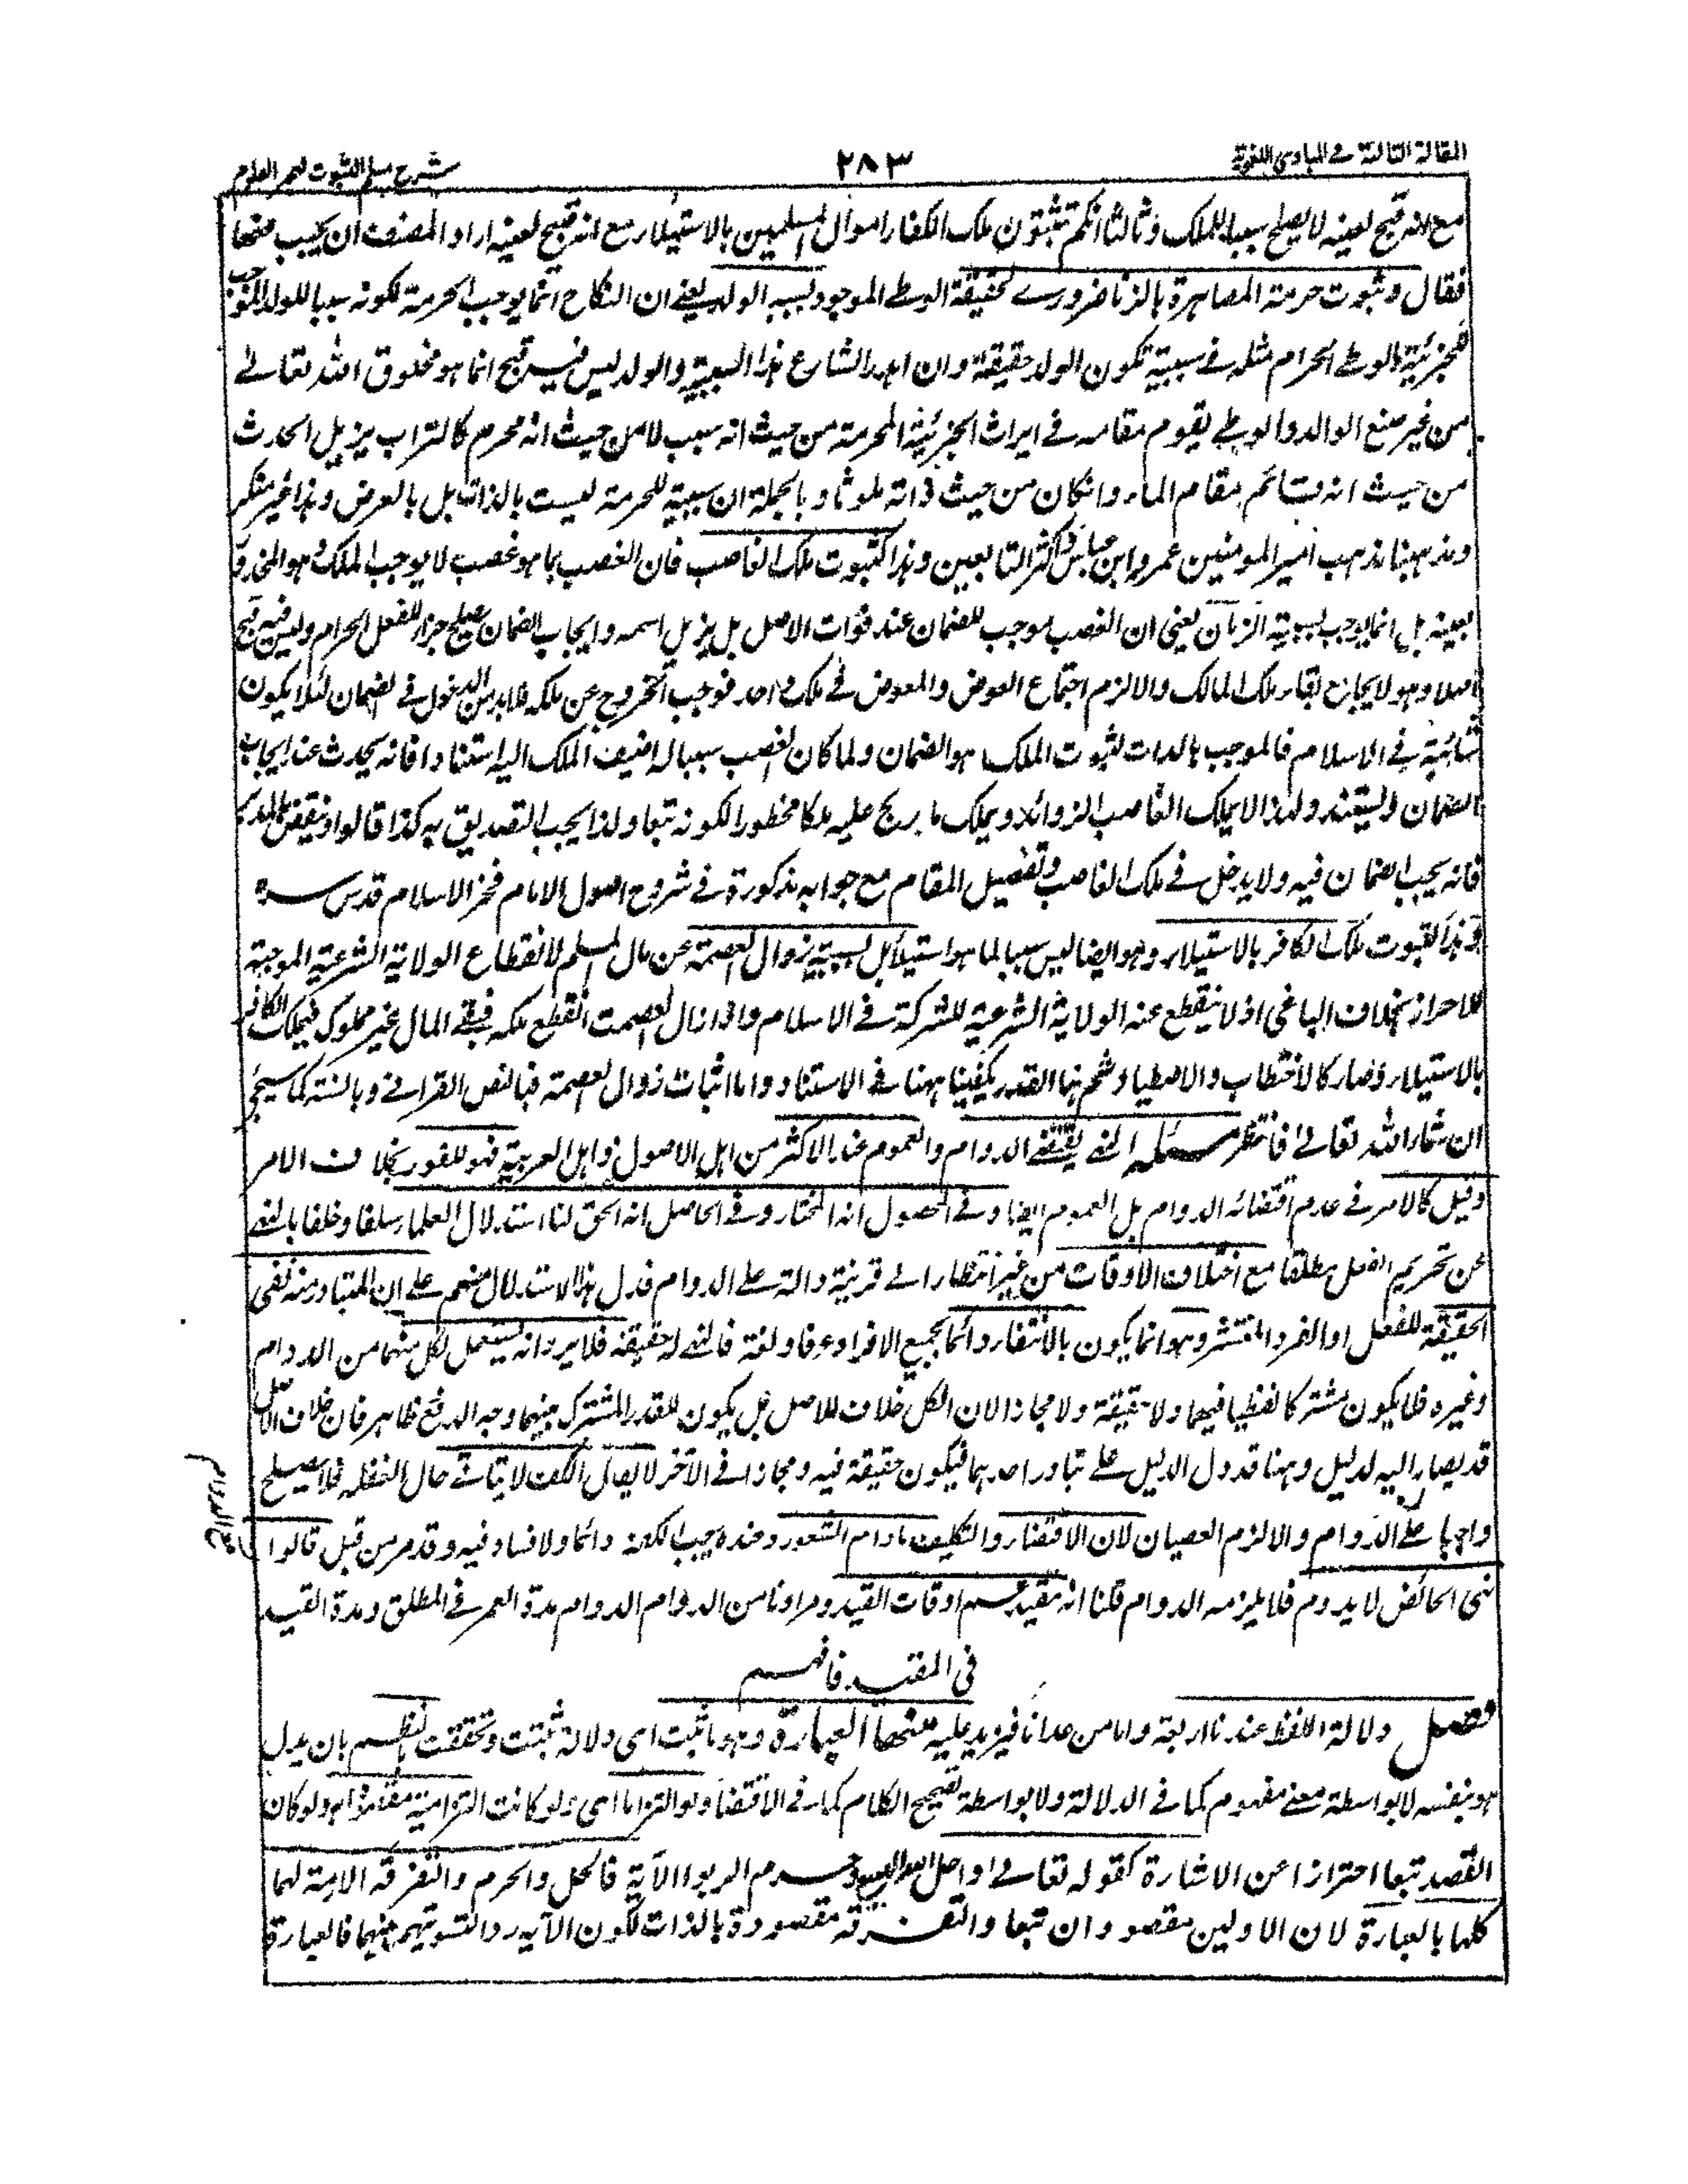 المقالة الثالثة في المبادي اللغوية
٢٨٣
شرح مسلم الثبوت لبحر العلوم
مع انه قبيح لعينه لا يصلح سببا للملك وثالثا انكم تثبتون ملك الكفار اموال المسلمين بالاستيلاء مع انه قبيح لعينه اراد المصنف ان يجيب عنها
فقال وثبوت حرمة المصاهرة بالزنا ضروري لحقيقة الوطي الموجود بسببه الولد يعني ان النكاح انما يوجب الحرمة لكونه سببا للولد الموجب
للجزئية فالوطي الحرام مثله في سببية تكون الولد حقيقة وان اهدر الشارع هذا السببية والولد ليس فيه قبح انما هو مخلوق الله تعالى
من غير صنع الوالد والوطي يقوم مقامه في ايراث الجزئية المحرمة من حيث انه سبب لا من حيث انه محرم كالتراب يزيل الحدث
من حيث انه قائم مقام الماء وان كان من حيث ذاته ملوثا وبالجملة ان سببية للحرمة ليست بالذات بل بالعرض وهذا غير منكر
ومذهبنا مذهب امير المومنين عمر وابن عباس واكثر التابعين وهذا كثبوت ملك الغاصب فان الغصب بما هو غصب لا يوجب الملك وهو المحذور
بعينه بل انما يوجب لسببية الزمان يعني ان الغصب موجب للضمان عند فوات الاصل بل يزيل اسمه وايجاب الضمان يصلح جزاء للفعل الحرام وليس فيه قبح
اصلا وهو لا يجامع بقاء ملك المالك والا لزم اجتماع العوض والمعوض في ملك واحد فوجب الخروج عن ملكه فلا بد من الدخول في الضمان لئلا يكون
سائبة في الاسلام فالموجب بالذات لثبوت الملك هو الضمان ولما كان الغصب سببا له اضيف الملك اليه استنادا فانه يحدث عند ايجاب
الضمان ويستند ولهذا لا يملك الغاصب الزوائد ويملك ما ربح عليه ملكا محظورا لكونه تبعا ولذا يجب التصديق به كذا قالوا ونقض بالمدبر
فانه يجب الضمان فيه ولا يدخل في ملك الغاصب وتفصيل المقام مع جوابه مذكورة في شروح اصول الامام فخر الاسلام قدس سره
وهذا كثبوت ملك الكافر بالاستيلاء وهو ايضا ليس سببا لما هو استيلاء بل لسببية زوال العصمة عن مال المسلم لانقطاع الولاية الشرعية الموجبة
للاحراز بخلاف الباغي اذ لا ينقطع عنه الولاية الشرعية للشركة في الاسلام واذا زال العصمت انقطع ملكه فبقي المال غير مملوك فيملك الكافر
بالاستيلاء فصار كالاحتطاب والاصطياد ثم هذا القدر يكفينا ههنا في الاستناد واما اثبات زوال العصمة فبالنص القرآني وبالسنة كما سيجئ
ان شاء الله تعالى فانتظر مسئلة النهي يقتضي الدوام والعموم عند الاكثر من اهل الاصول واهل العربية فهو للفور بخلاف الامر
وقيل كالامر في عدم اقتضائه الدوام بل العموم ايضا وفي المحصول انه المختار وفي الحاصل انه الحق لنا استدلال العلماء سلفا وخلفا بالنهي
عن تحريم الفعل مطلقا مع اختلاف الاوقات من غير انتظار الى قرينة دالة على الدوام فدل هذا الاستدلال منهم على ان المتبادر منه نفى
الحقيقة للفعل او الفرد المنتشر وهو انما يكون بالانتفاء دائما بجميع الافراد عرفا ولغة فالنهي له حقيقة فلا يرد انه يستعمل لكل منهما من الدوام
وغيره فلا يكون مشتركا لفظيا فيهما ولا حقيقة ولا مجازا لان الكل خلاف للاصل بل يكون للقدر المشترك بينهما وجه الدفع ظاهر فان خلاف الاصل
قد يصار اليه لدليل وههنا قد دل الدليل على تبادر احدهما فيكون حقيقة فيه ومجازا في الآخر لا يقال الكف لا يتاتى حال الغفلة فلا يصلح
واجبا على الدوام والا لزم العصيان لان الاقتضاء والتكليف ما دام الشعور وعنده يجب الكف دائما ولا فساد فيه وقد مر من قبل قالوا
نهى الحائض لا يدوم فلا يلزمه الدوام قلنا انه مقيد عم اوقات القيد ومرادنا من الدوام الدوام مدة العمر في المطلق ومدة القيد
في المقيد فافهم
فصل دلالة اللفظ عندنا اربعة واما من عدانا فيزيد عليه منها العبارة وهو ما ثبت اى دلالة ثبتت وتحققت بالنظم بان يدل
هو بنفسه لا بواسطة معنى مفهوم كما في الدلالة ولا بواسطة تصحيح الكلام كما في الاقتضاء ولو التزاما اى ولو كانت التزامية مقصودا به ولو كان
القصد تبعا احترازا عن الاشارة كقوله تعالى واحل الله البيع وحرم الربوا الآية فالحل والحرم والتفرقة اللازمة لهما
كلها بالعبارة لان الاولين مقصود وان تبعا والتفرقة مقصودة بالذات لكون الآية رد التسويتهم بينهما فالعبارة